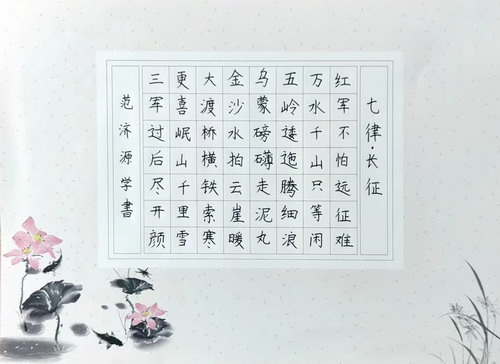 七律·长征
红军不怕远征难
万水千山只等闲
五岭逶迤腾细浪
乌蒙磅礴走泥丸
金沙水拍云崖暖
大渡桥横铁索寒
更喜岷山千里雪
三军过后尽开颜
范济源学書